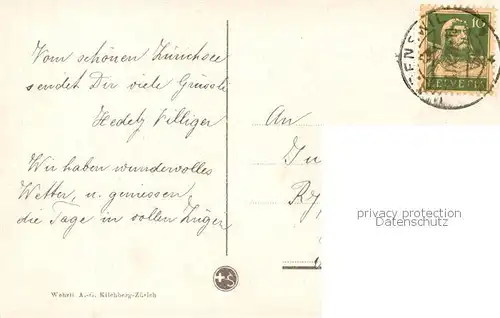 Vom schönen Zürichsee
sendet Dir viele Grüsse
Hedely Villiger
Wir haben wundervolles
Wetter, u. geniessen
die Tage in vollen Zügen
An
10
HELVETIA
privacy protection
Datenschutz
Wehrli A.-G. Kilchberg-Zürich